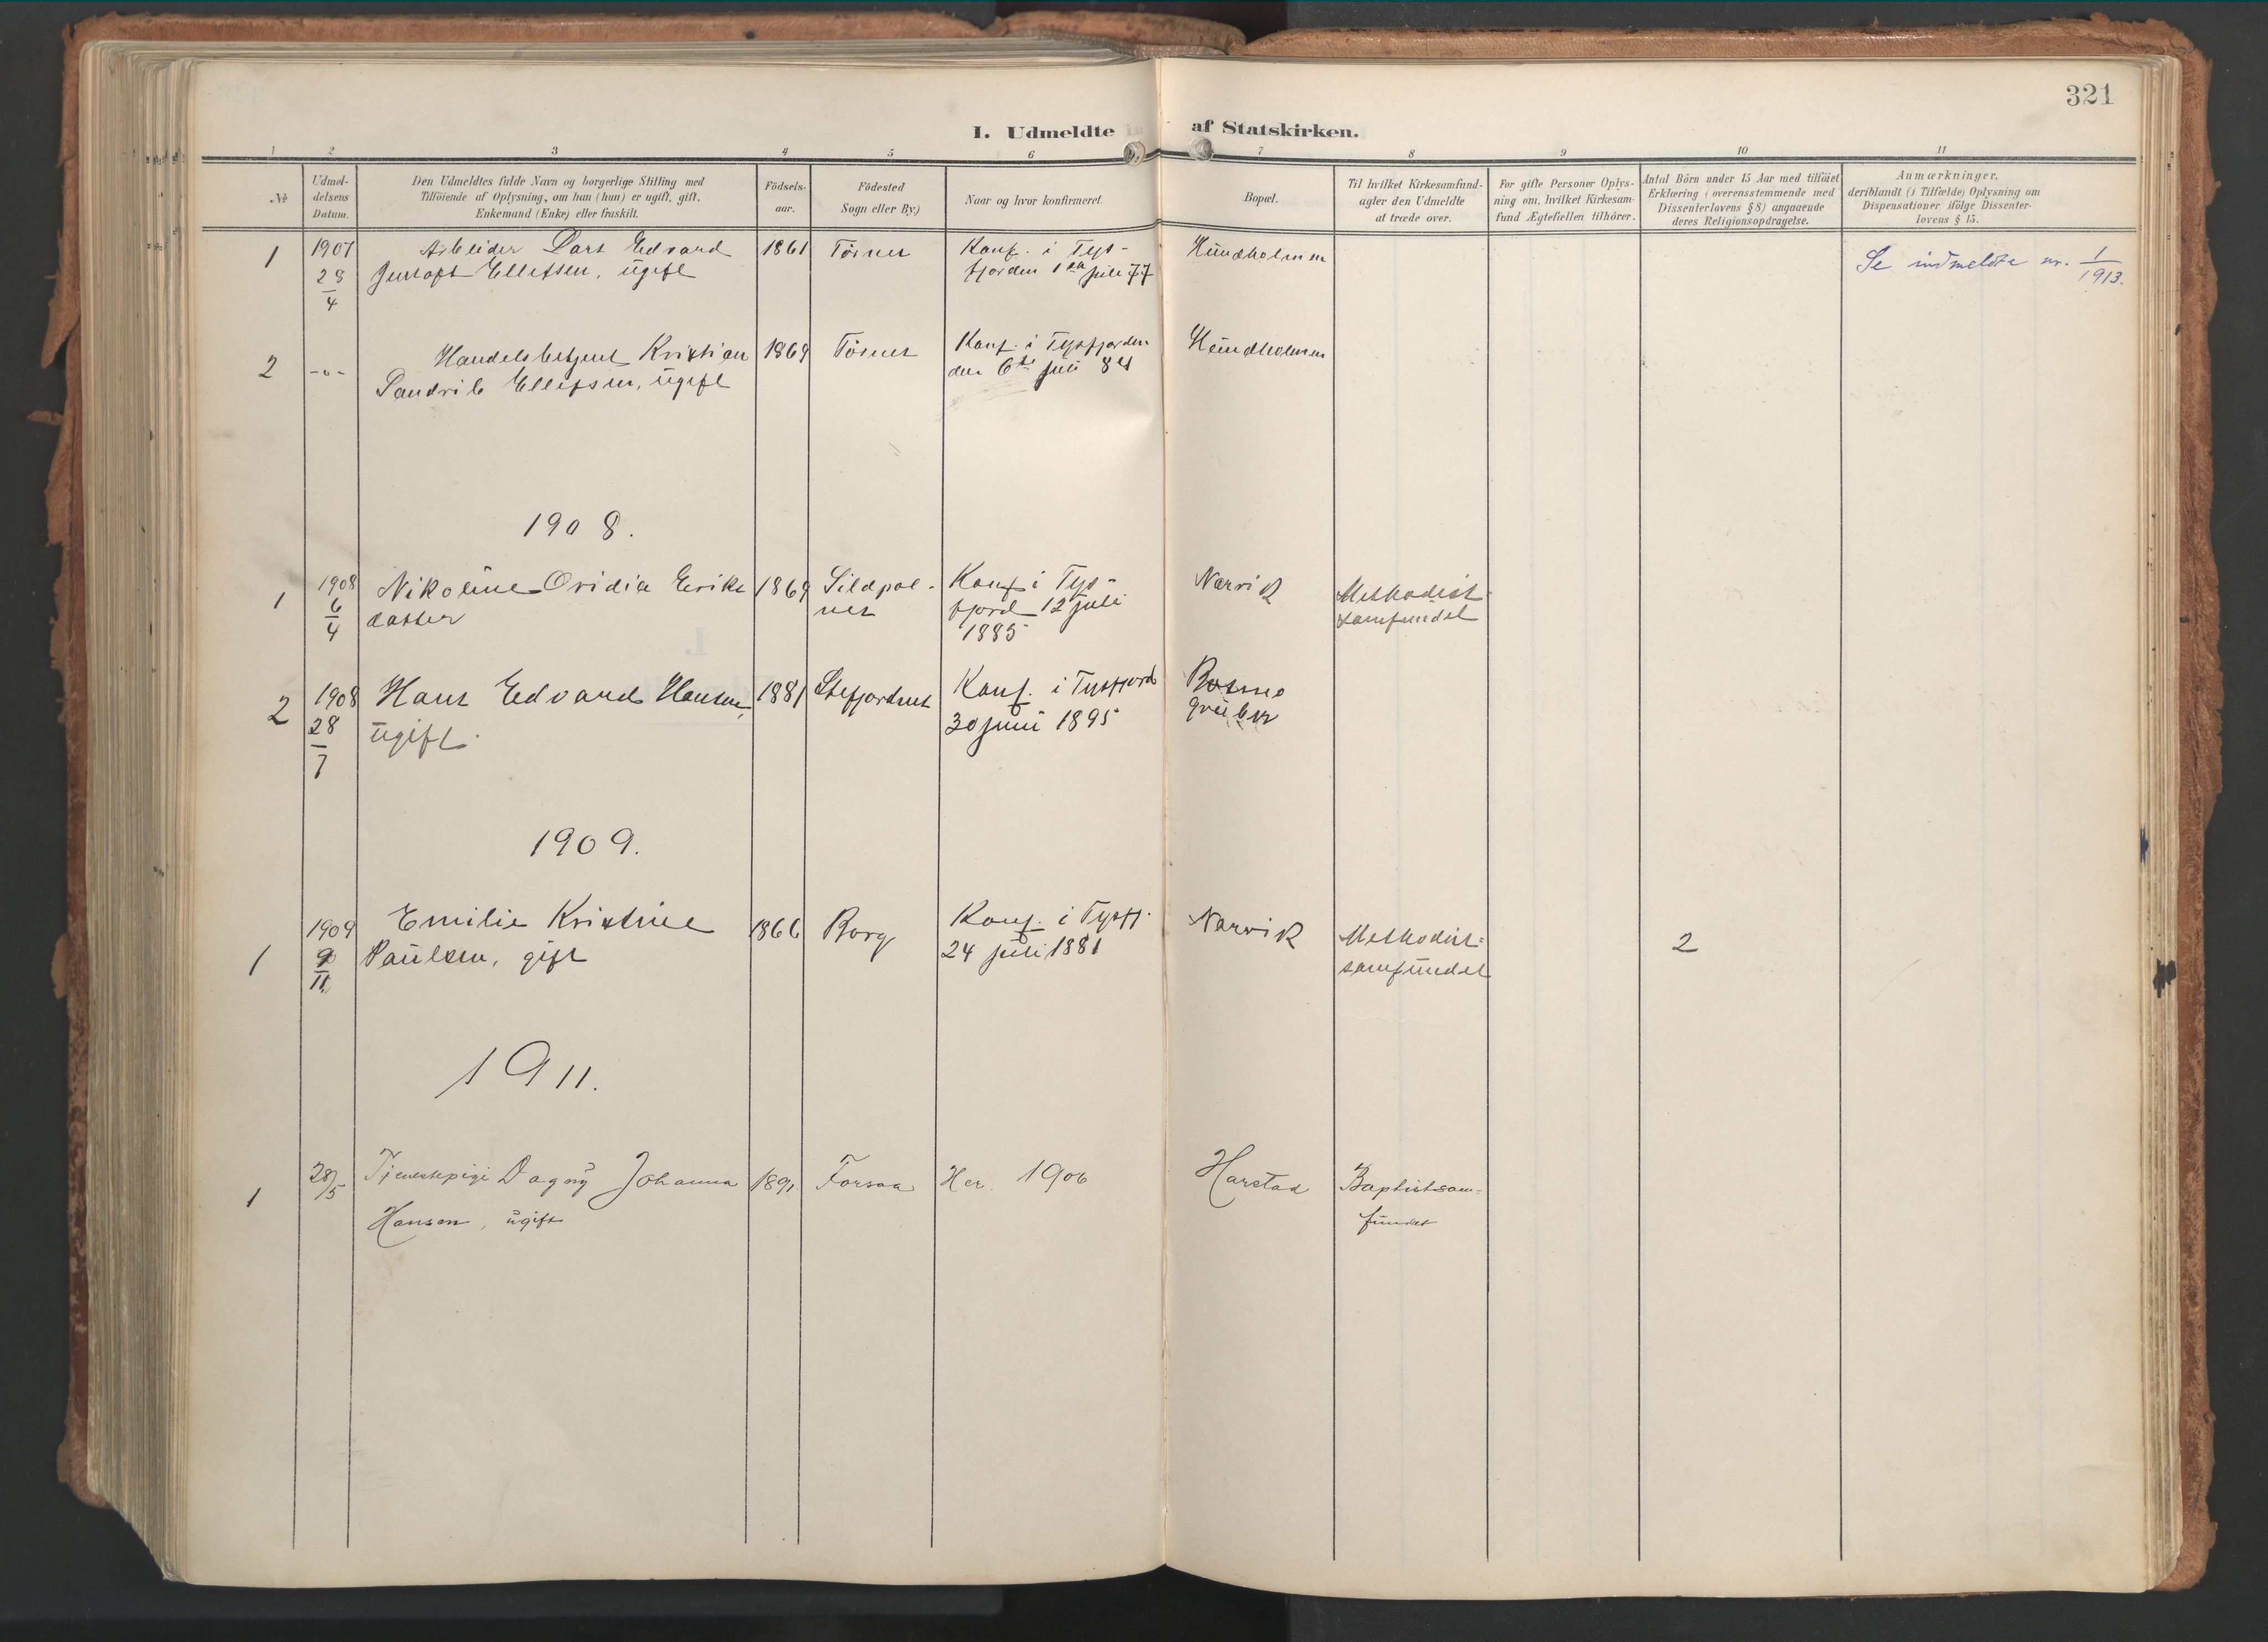 321
I. Udmeldte af Statskirken.
1 2 3 4 5 6 7 8 9 10 11
№
Udmel-
delsens
Datum.
Den Udmeldtes fulde Navn og borgerlige Stilling med
Tilföiende af Oplysning, om han (hun) er ugift, gift,
Enkemand (Enke) eller fraskilt.
Födsels-
aar.
Födested
Sogn eller By.)
Naar og hvor konfirmeret.
Bopæl.
Til hvilket Kirkesamfund-
agter den Udmeldte
at træde over.
For gifte Personer Oplys-
ning om, hvilket Kirkesam-
fund Ægtefællen tilhörer.
Antal Börn under 15 Aar med tilföiet
Erklæring (overensstemmende med
Dissenterlovens § 8) angaaende
deres Religionsopdragelse.
Anmærkninger,
deriblandt (i Tilfælde) Oplysning om
Dispensationer ifölge Dissenter-
lovens § 15.
1
1907
28
4
Arbeider Lars Edvard
Ellefsen, ugift
1861
Tösnes
Konf. i Tys-
fjorden 1ste juli 77
Hundholmen
Se indmeldte nr. 1
1913.
2
-"-
Handelsbetjent Kristian
Ellefsen, ugift
1869
Tösnes
Konf. i Tysfjorden
den 6te juli 84
Hundholmen
1908.
1
1908
6
4
Nikoline Ovidia Eriks
datter
1869
Sildpol-
nes
Konf i Tys-
fjord 12 juli
1885
Narvik
Methodist-
samfundet
2
1908
28
7
Hans Edvard Hansen,
ugift.
1881
Stefjordnes
Konf. i Tysfjord
30 juni 1895
Bosmo
gruber
1909.
1
1909
9
11
Emilie Kristine
Paulsen, gift
1866
Borg
Konf. i Tysfj.
24 juli 1881
Narvik
Methodist-
samfundet
2
1911.
1
28/5
Tjenestepige Dagny Johanna
Hansen, ugift
1891
Forsaa
Her. 1906
Harstad
Baptistsam-
fundet